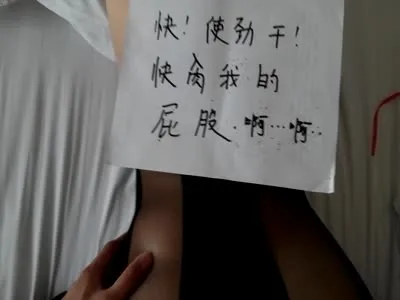 快！使劲干！
快肏我的
屁股．啊…啊‥